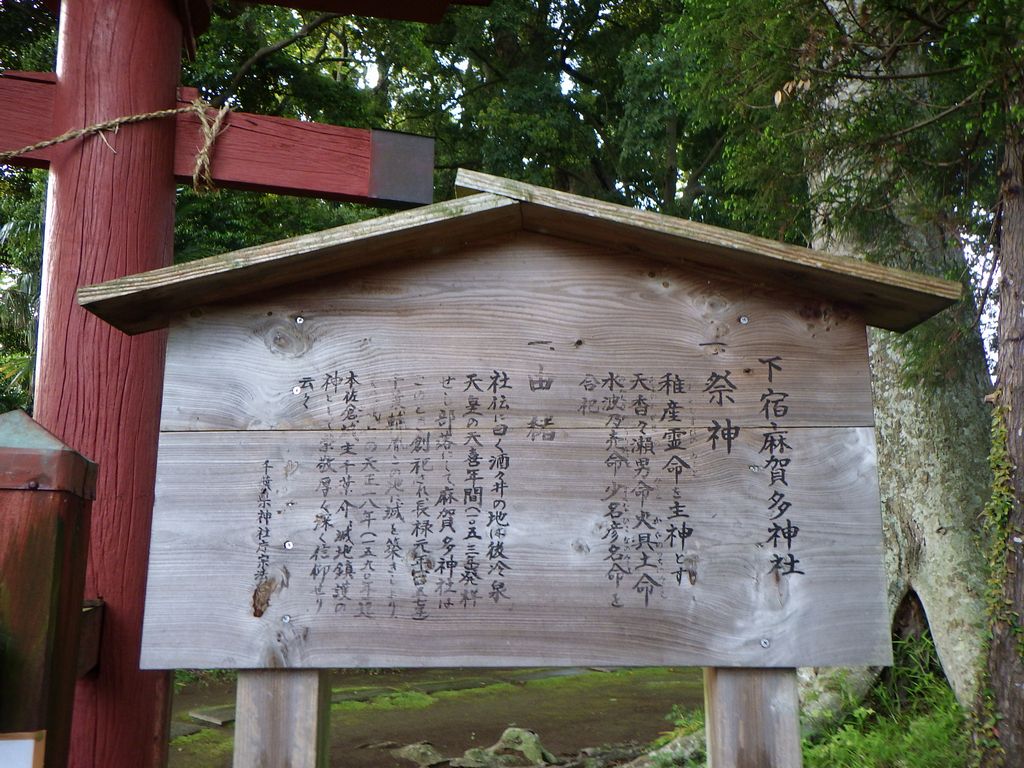 下宿麻賀多神社
一 祭神
稚産霊命を主神とす
天香々瀬男命 火具土命
水波乃売命 少名彦名命を
合祀
一 由緒
社伝曰く酒々井の地は後冷泉
天皇の天喜年間(一〇五三年発祥
せし部落にして麻賀多神社は
創祀され長禄元年
此の地に城を築きしより
の天正一八年(一五九〇年迄
本佐倉城主千葉介 城地鎮護の
神として崇敬厚く深く信仰せり
云く
千葉県神社庁